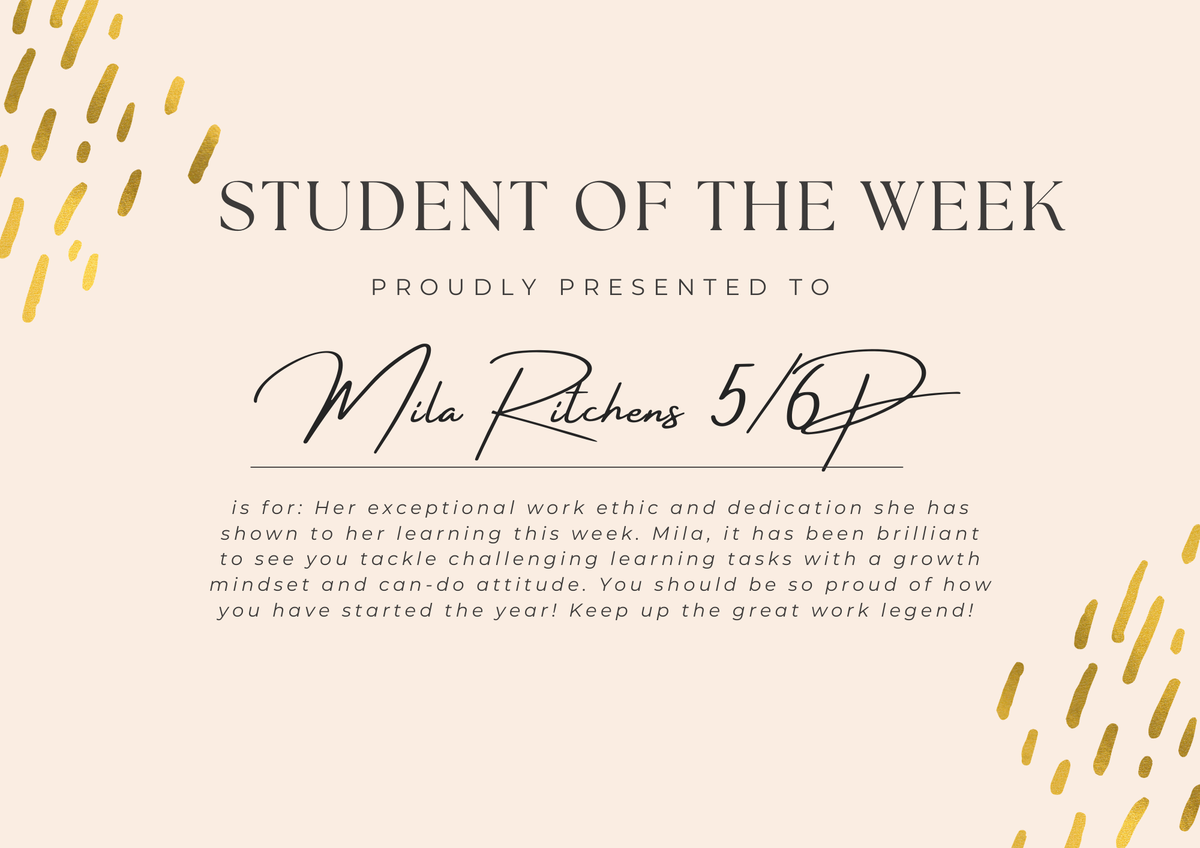 STUDENT OF THE WEEK
PROUDLY PRESENTED TO
Mila Ritchens 5/6P
is for: Her exceptional work ethic and dedication she has
shown to her learning this week. Mila, it has been brilliant
to see you tackle challenging learning tasks with a growth
mindset and can-do attitude. You should be so proud of how
you have started the year! Keep up the great work legend!